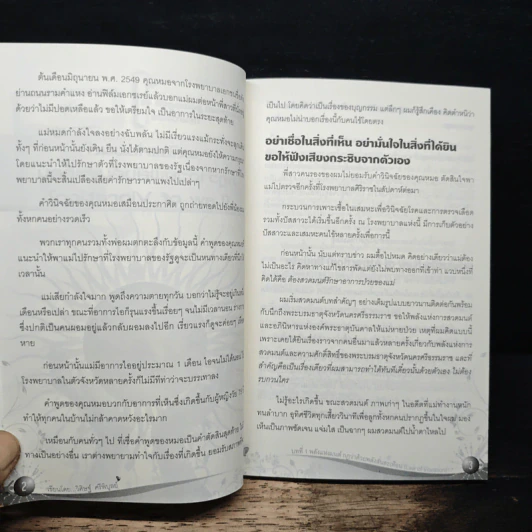 ต้นเดือนมิถุนายน พ.ศ. 2549 คุณหมอจากโรงพยาบาลเอกชนชื่อดัง
ย่านถนนรามคำแหง อ่านฟิล์มเอกซเรย์แล้วบอกแม่ผมต่อหน้าพี่สาว
ด้วยว่าไม่มีปอดเหลือแล้ว ขอให้เตรียมใจ เป็นอาการในระยะสุดท้าย
แม่หมดกำลังใจลงอย่างฉับพลัน ไม่มีเรี่ยวแรงแม้กระทั่งจะลุก
ทั้งๆ ที่ก่อนหน้านั้นยังเดิน ยืน นั่งได้ตามปกติ แต่คุณหมอยังให้ความ
โดยแนะนำให้ไปรักษาตัวที่โรงพยาบาลของรัฐเนื่องจากหากรักษาที่โรง
พยาบาลนี้จะสิ้นเปลืองเสียค่ารักษาราคาแพงไปเปล่าๆ
คำวินิจฉัยของคุณหมอเสมือนประกาศิต ถูกถ่ายทอดไปยังพี่น้อง
ทั้งหกคนอย่างรวดเร็ว
พวกเราทุกคนรวมทั้งพ่อผมตกตะลึงกับข้อมูลนี้ คำพูดของคุณหมอ
แนะนำให้พาแม่ไปรักษาที่โรงพยาบาลของรัฐดูจะเป็นหนทางเดียวที่มี
เวลานั้น
แม่เสียกำลังใจมาก พูดถึงความตายทุกวัน บอกว่าไม่รู้จะอยู่กัน
เดือนหรือเปล่า ขณะที่อาการไอก็รุนแรงขึ้นเรื่อยๆ จนไม่มีเวลานอน
ซึ่งปกติเป็นคนผอมอยู่แล้วกลับผอมลงไปอีก เรี่ยวแรงก็ดูจะค่อยๆ
หาย
ก่อนหน้านั้นแม่มีอาการไออยู่ประมาณ 1 เดือน ไอจนไม่ได้นอน
โรงพยาบาลในตัวจังหวัดหลายครั้งก็ไม่มีทีท่าว่าจะบรรเทาลง
คำพูดของคุณหมอบวกกับอาการที่เห็นซึ่งเกิดขึ้นกับผู้หญิงวัย
ทำให้ทุกคนในบ้านไม่กล้าคาดหวังอะไรมาก
เหมือนกับคนทั่วๆ ไป ที่เชื่อคำพูดของหมอเป็นคำตัดสินสุดท้าย
ทางเป็นอย่างอื่น เราต่างพยายามทำใจกับเรื่องที่เกิดขึ้น ยอมรับสภาพ
2
เป็นไป โดยคิดว่าเป็นเรื่องของบุญกรรม แต่ลึกๆ ผมก็รู้สึกเคือง คิดตำหนิว่า
คุณหมอไม่น่าบอกเรื่องนี้กับคนไข้โดยตรง
อย่าเชื่อในสิ่งที่เห็น อย่ามั่นใจในสิ่งที่ได้ยิน
ขอให้ฟังเสียงกระซิบจากตัวเอง
พี่สาวคนรองของผมไม่ยอมรับคำวินิจฉัยของคุณหมอ ตัดสินใจพา
แม่ไปตรวจอีกครั้งที่โรงพยาบาลศิริราชในสัปดาห์ต่อมา
กระบวนการเพาะเชื้อในเสมหะเพื่อวินิจฉัยโรคและการตรวจเลือด
รวมทั้งปัสสาวะได้เริ่มขึ้นอีกครั้ง ณ โรงพยาบาลแห่งนี้ มีการเก็บตัวอย่าง
ปัสสาวะและเสมหะคนไข้หลายครั้งเพื่อการนี้
ก่อนหน้านั้น นับแต่ทราบข่าว ผมตื้อไปหมด คิดอย่างเดียวว่าแม่ต้อง
ไม่เป็นอะไร คิดหาทางแก้ไขสารพัดแต่ยังไม่พบทางออกที่เข้าท่า แวบหนึ่งที่
คิดได้คือ ต้องสวดมนต์รักษาอาการป่วยของแม่
ผมเริ่มสวดมนต์บทสำคัญๆ อย่างเต็มรูปแบบยาวนานติดต่อกันพร้อม
กับนึกถึงพระบรมธาตุจังหวัดนครศรีธรรมราช ขอให้พลังแห่งการสวดมนต์
และอภินิหารแห่งองค์พระธาตุบันดาลให้แม่หายป่วย เหตุที่ผมคิดแบบนี้
เพราะเคยได้ยินเรื่องราวจากคนอื่นมาแล้วหลายครั้งเกี่ยวกับพลังแห่งการ
สวดมนต์และความศักดิ์สิทธิ์ของพระบรมธาตุจังหวัดนครศรีธรรมราช และที่
สำคัญคือเป็นเรื่องเดียวที่ผมสามารถทำได้ทันทีเดี๋ยวนั้นด้วยตัวเอง ไม่ต้อง
รบกวนใคร
ไม่รู้อะไรเกิดขึ้น ขณะสวดมนต์ ภาพเก่าๆ ในอดีตที่แม่ทำงานหนัก
ทนลำบาก อุทิศชีวิตทุกเสี้ยววินาทีเพื่อลูกทั้งหกคนปรากฏขึ้นในใจผม
เห็นเป็นภาพชัดเจน แจ่มใส เป็นฉากๆ ผมสวดมนต์ไปน้ำตาไหลไป